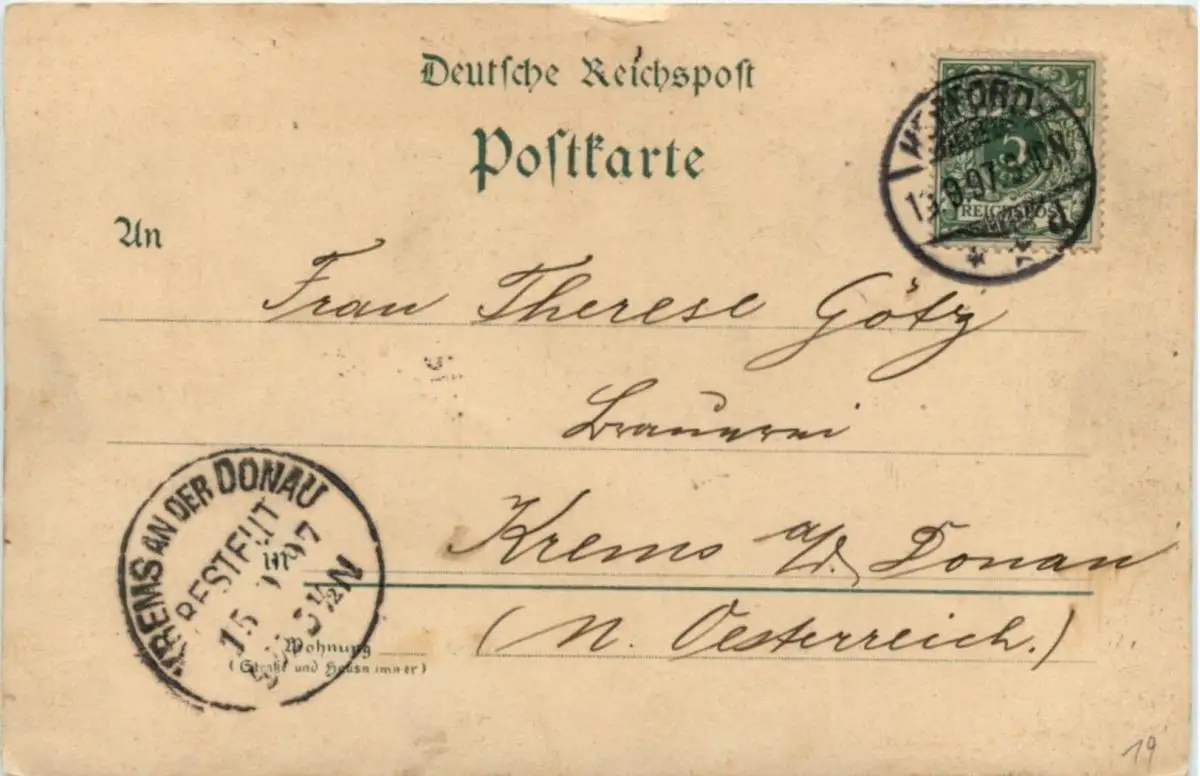 Deutsche Reichspost
Postkarte
HERFORD
13.9.97.9-10N.
d
5
REICHSPOST
An
Frau Therese Götz
Brauerei
Krems a/d. Donau
(N. Oesterreich.)
in
Wohnung
(Straße und Hausnummer)
KREMS AN DER DONAU
BESTELLT
15 9 97
3½N
19